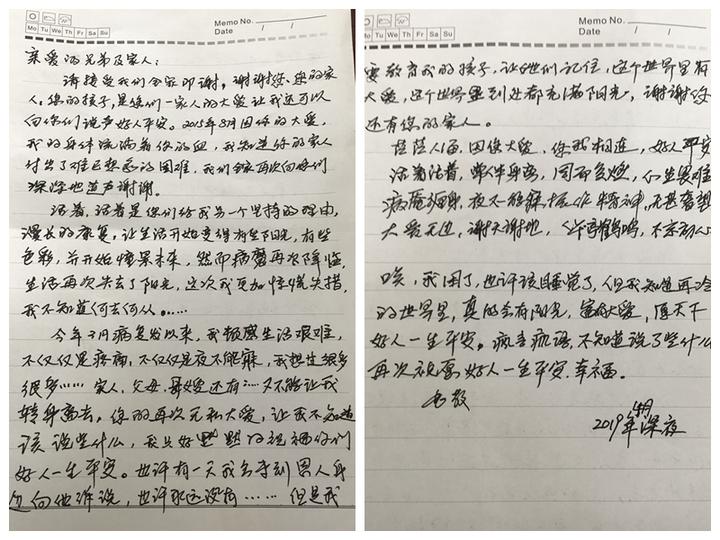 Memo No.
Mo Tu We Th Fr Sa Su
Date / /
亲爱的兄弟及家人：
请接受我们全家叩谢，谢谢您、您的家
人、您的孩子，是您们一家人的大爱让我还可以
向你们说声好人平安。2015年8月因你的大爱，
我的身体流淌着你的血，我知道你的家人
付出了难已想象的困难，我们全家再次向你们
深深地道声谢谢。
活着，活着是你们给我另一个坚持的理由，
漫长的康复，让生活开始变得有些阳光，有些
色彩，并开始憧憬未来，然而病魔再次降临，
生活再次失去了阳光，这次我更加惊慌失措，
我不知道何去何从……
今年2月病复发以来，我顿感生活艰难，
不仅仅是疼痛，不仅仅是夜不能寐，我想过很多
很多……家人、父母、哥嫂还有……又不能让我
转身离去，你的再次无私大爱，让我不知道
该说些什么，我只好默默的祝福你们
好人一生平安。也许有一天我会寻到恩人身
边向他诉说，也许永远没有……但是我
Memo No.
Mo Tu We Th Fr Sa Su
Date / /
要教育我的孩子，让她们记住，这个世界里有
大爱，这个世界里到处都充满阳光，谢谢您
还有您的家人。
茫茫人海，因缘大爱，你我相连，好人平安
活着活着，常伴身旁，
病魔缠身，夜不能寐，
大爱无边，谢天谢地，
唉，我困了，也许该睡觉了，但我知道再冷
的世界里，真的会有阳光，富有大爱，愿天下
好人一生平安。疯言疯语，不知道说了些什么
再次祝愿好人一生平安、幸福。
2019年 深夜